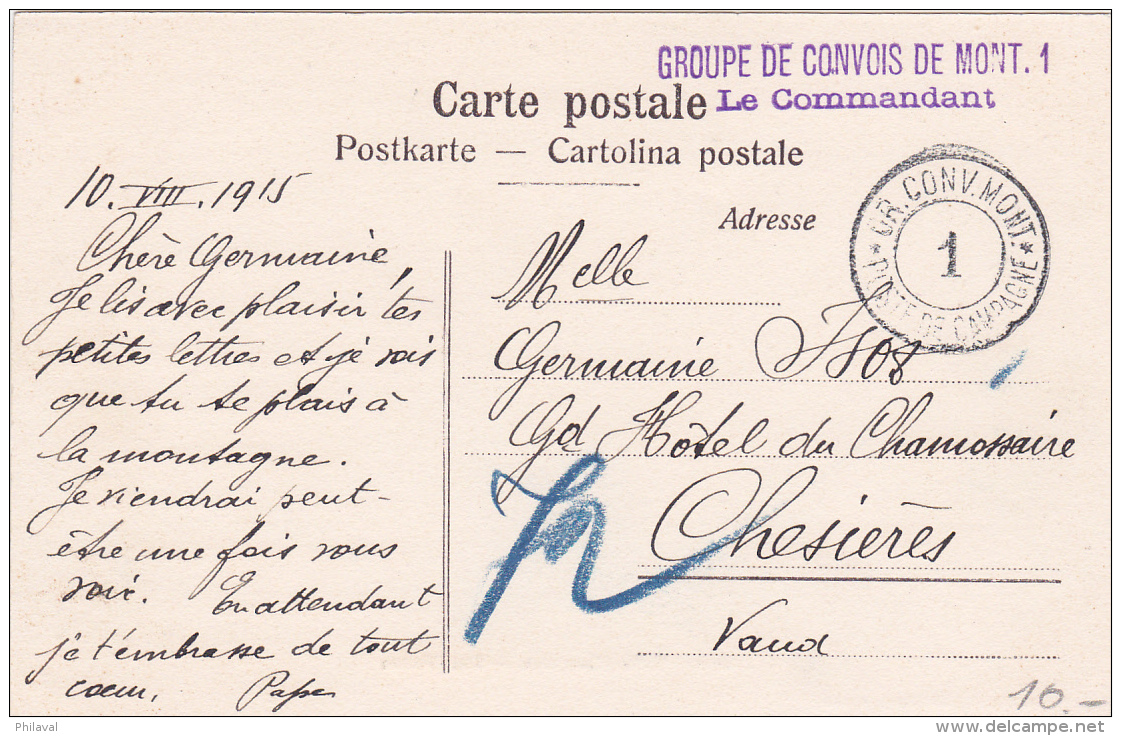 GROUPE DE CONVOIS DE MONT. 1
Carte postale Le Commandant
Postkarte — Cartolina postale
GR. CONV. MONT.
1
* POSTE DE CAMPAGNE *
Adresse
10. VIII. 1915
Chère Germaine,
Je lis avec plaisir tes
petites lettres et je vois
que tu te plais à
la montagne.
Je viendrai peut-
être une fois vous
voir. En attendant
je t'embrasse de tout
cœur. Papa
Melle
Germaine
Gd Hôtel du Chamossaire
Chesières
Vaud
10.-
Philaval
www.delcampe.net